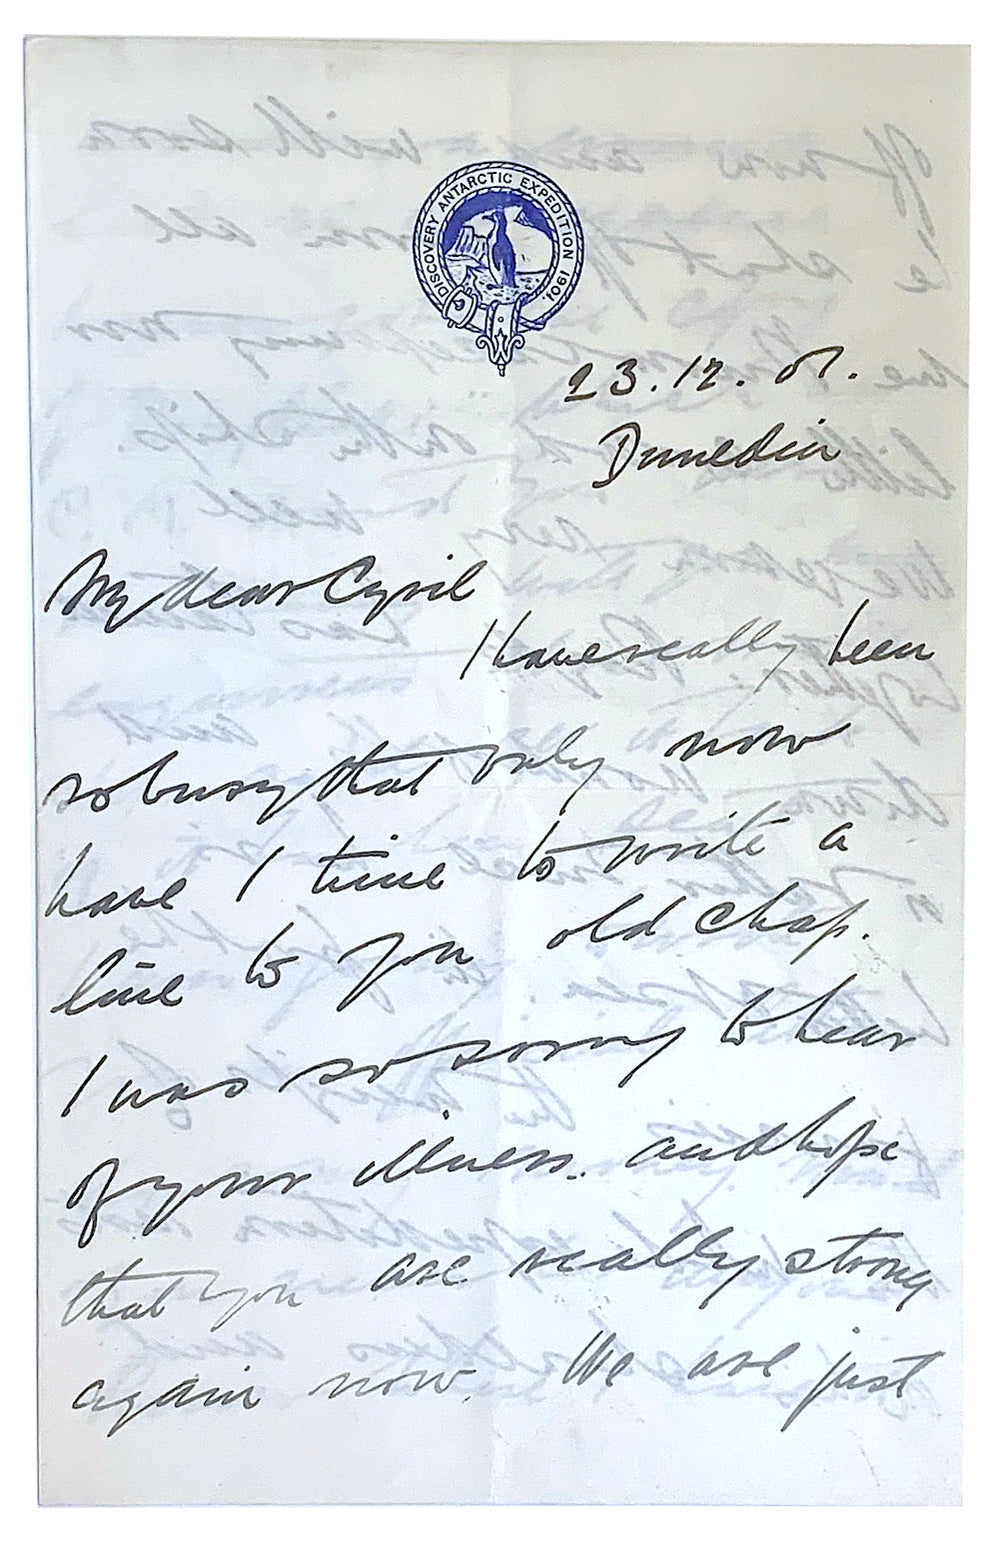 DISCOVERY ANTARCTIC EXPEDITION 1901
23.12.01.
Dunedin
My dear Cyril
I have really been
so busy that only now
have I time to write a
line to you old chap.
I was so sorry to hear
of your illness. and hope
that you are really strong
again now. We are just